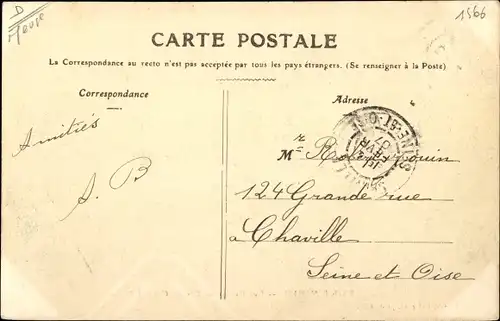 D
Meuse
1566
CARTE POSTALE
La Correspondance au recto n'est pas acceptée par tous les pays étrangers. (Se renseigner à la Poste)
Correspondance
Adresse
Amitiés
A. B
Mr Robert
124 Grande rue
à Chaville
Seine et Oise